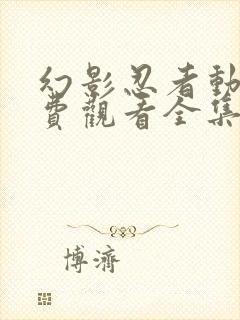 幻影忍者動
費觀看全集
博濟